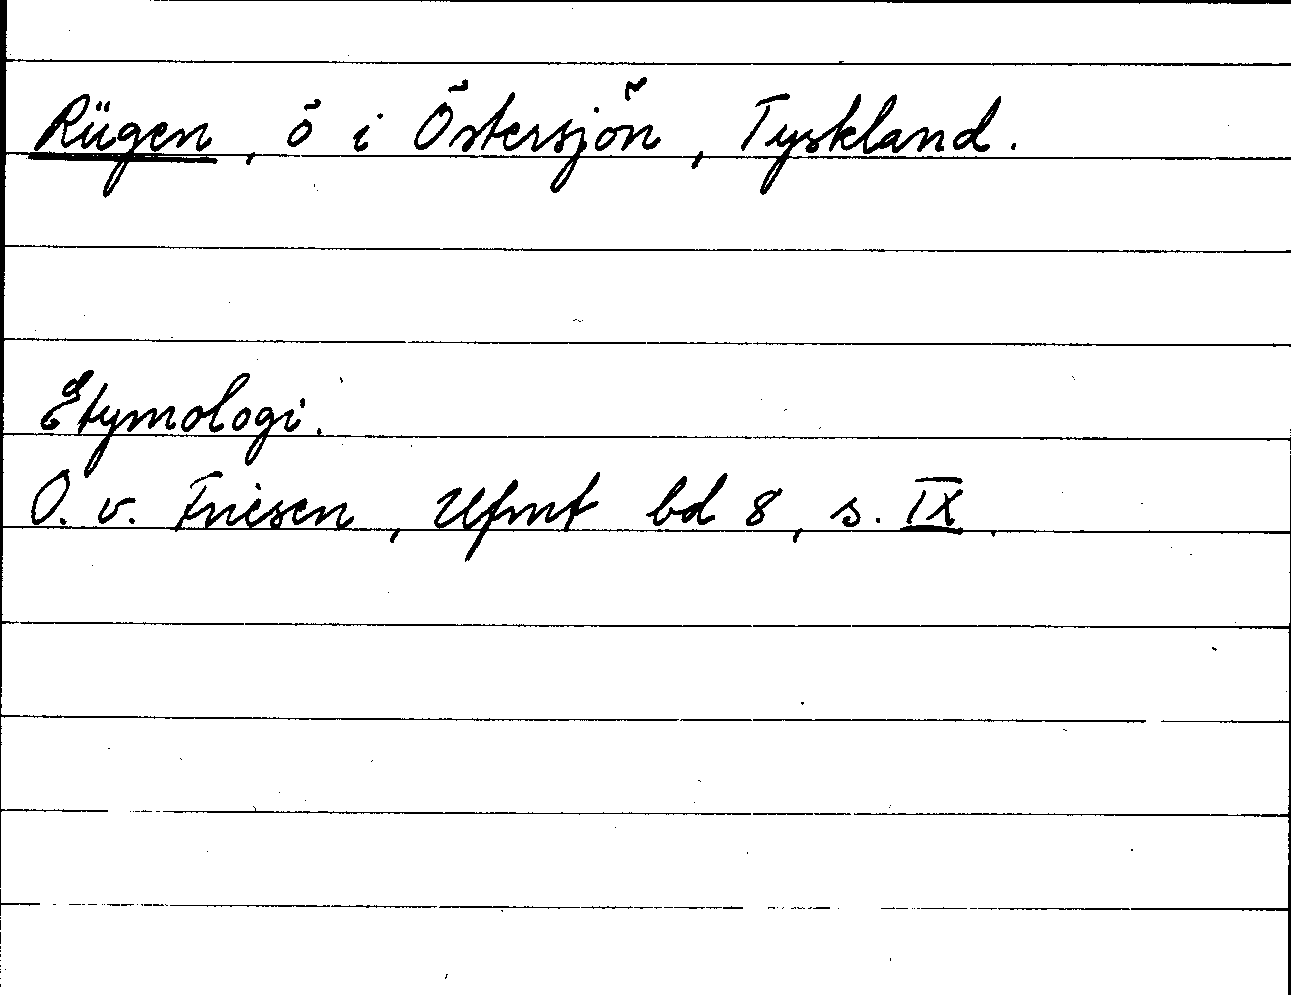 Rügen, ö i Östersjön, Tyskland.
Etymologi.
O. v. Friesen, Ufmt bd 8, s. IX.